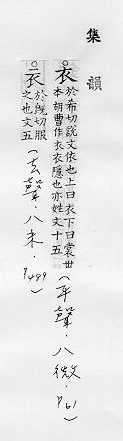 集韻
○衣
於希切說文依也上曰衣下曰裳世
本胡曹作衣衣隱也亦姓文十五
(平聲·八微·P61)
○衣
於旣切服
之也文五
(去聲·八未·P489)